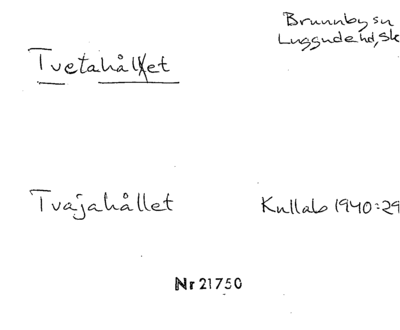 Brunnby sn
Luggude hd, Sk
Tvetahålet
Tvajahållet
Kullab 1940:29
Nr 21750